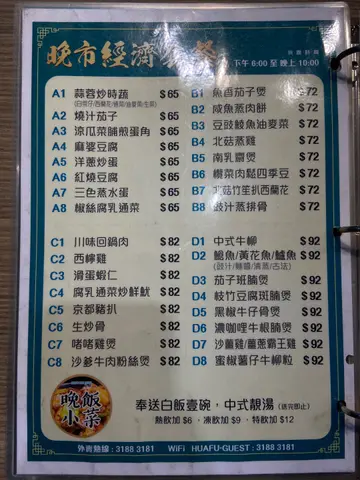 晚市經濟
供應時間
下午 6:00 至 晚上 10:00
A1 蒜蓉炒時蔬 $65
A2 燒汁茄子 $65
A3 涼瓜菜脯煎蛋角 $65
A4 麻婆豆腐 $65
A5 洋蔥炒蛋 $65
A6 紅燒豆腐 $65
A7 三色蒸水蛋 $65
A8 椒絲腐乳通菜 $65
B1 魚香茄子煲 $72
B2 咸魚蒸肉餅 $72
B3 豆豉鯪魚油麥菜 $72
B4 北菇蒸雞 $72
B5 南乳齋煲 $72
B6 欖菜肉鬆四季豆 $72
B7 北菇竹笙扒西蘭花 $72
B8 豉汁蒸排骨 $72
C1 川味回鍋肉 $82
C2 西檸雞 $82
C3 滑蛋蝦仁 $82
C4 腐乳通菜炒鮮魷 $82
C5 京都豬扒 $82
C6 生炒骨 $82
C7 啫啫雞煲 $82
C8 沙爹牛肉粉絲煲 $82
D1 中式牛柳 $92
D2 鯇魚/黃花魚/鱸魚 $92
D3 茄子班腩煲 $92
D4 枝竹豆腐斑腩煲 $92
D5 黑椒牛仔骨煲 $92
D6 濃咖喱牛根腩煲 $92
D7 沙薑雞/薑蔥霸王雞 $92
D8 蜜椒薯仔牛柳粒 $92
晚飯
小菜
奉送白飯壹碗，中式靚湯 (送完即止)
熱飲加 $6，凍飲加 $9，特飲加 $12
外賣熱線：3188 3181 WiFi HUAFU-GUEST：3188 3181